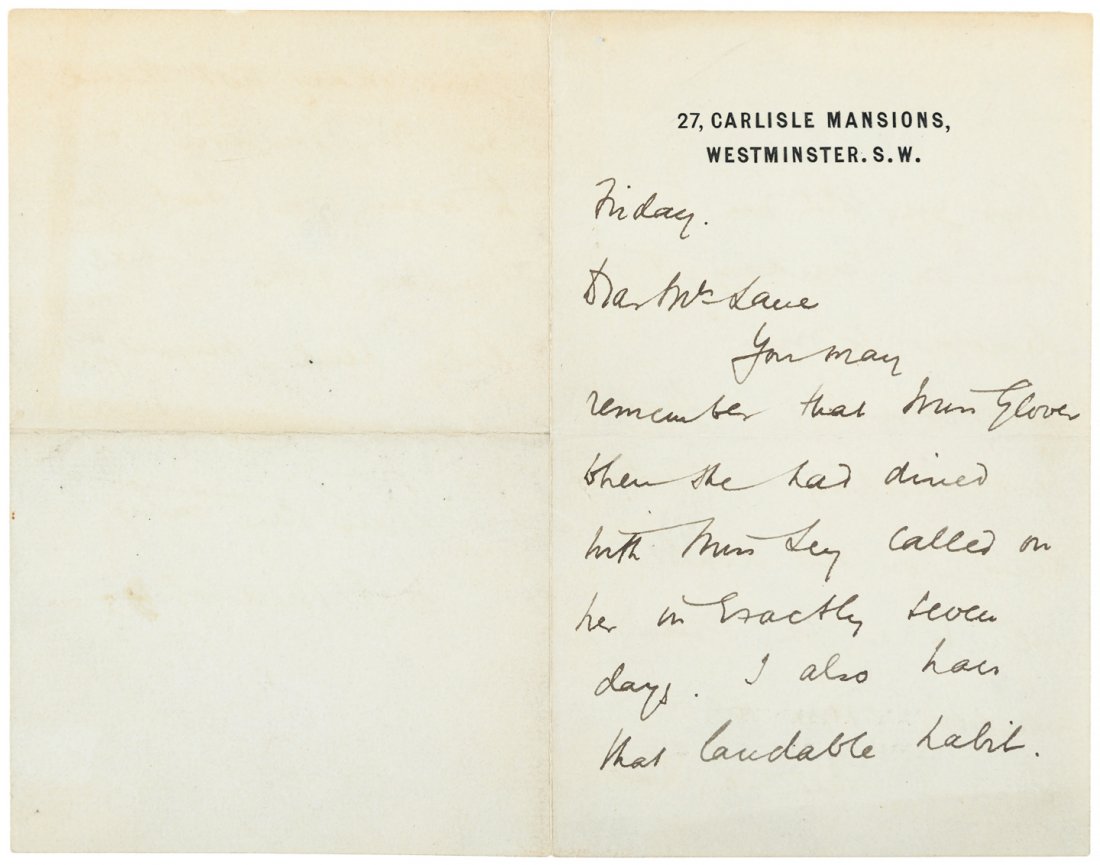 27, CARLISLE MANSIONS,
WESTMINSTER. S.W.
Friday.
Dear Mr Lane
You may
remember that Miss Glover
when she had dined
with Miss Ley called on
her in exactly seven
days. I also have
that laudable habit.